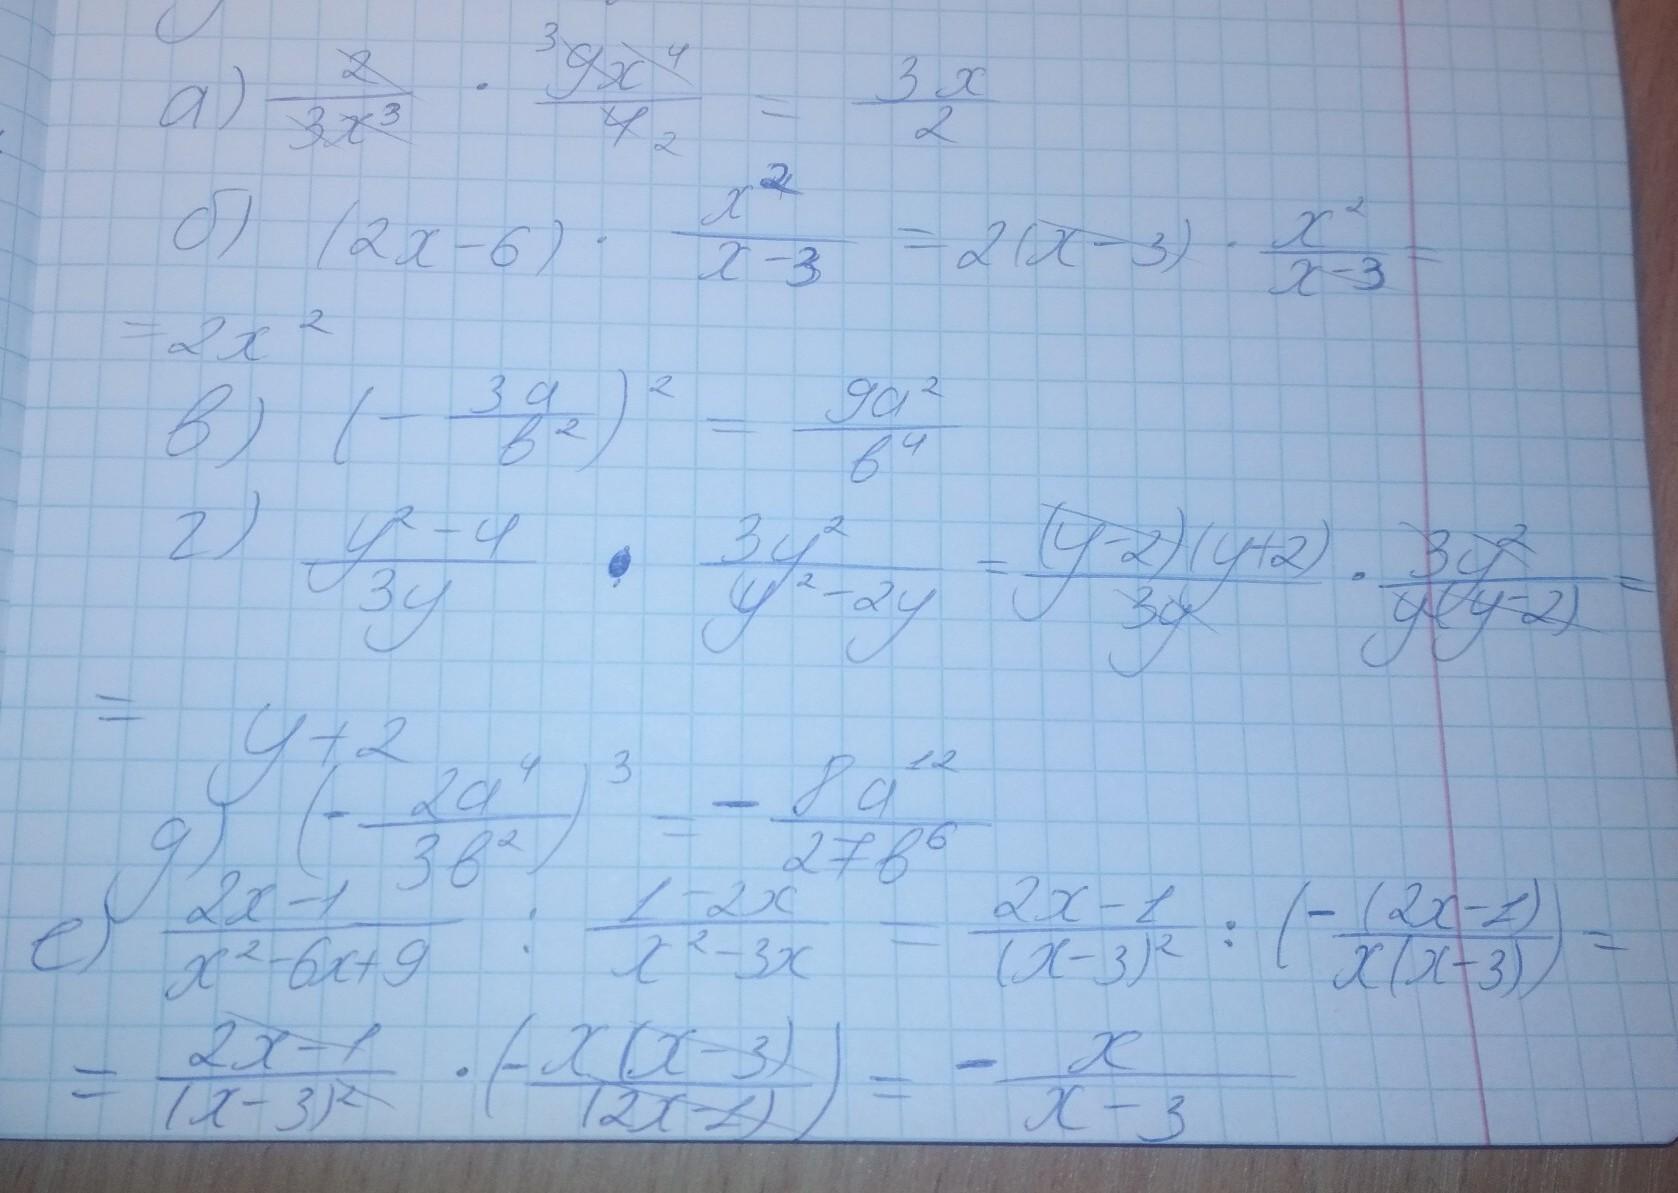 а) 2/3x³ · 9x⁴/4 = 3x/2
б) (2x-6) · x²/x-3 = 2(x-3) · x²/x-3 =
= 2x²
в) (- 3a/b²)² = 9a²/b⁴
г) y²-4/3y · 3y²/y²-2y = (y-2)(y+2)/3y · 3y²/y(y-2) =
= y+2
д) (- 2a⁴/3b²)³ = - 8a¹²/27b⁶
е) 2x-1/x²-6x+9 : 1-2x/x²-3x = 2x-1/(x-3)² : (- (2x-1)/x(x-3)) =
= 2x-1/(x-3)² · (- x(x-3)/(2x-1)) = - x/x-3